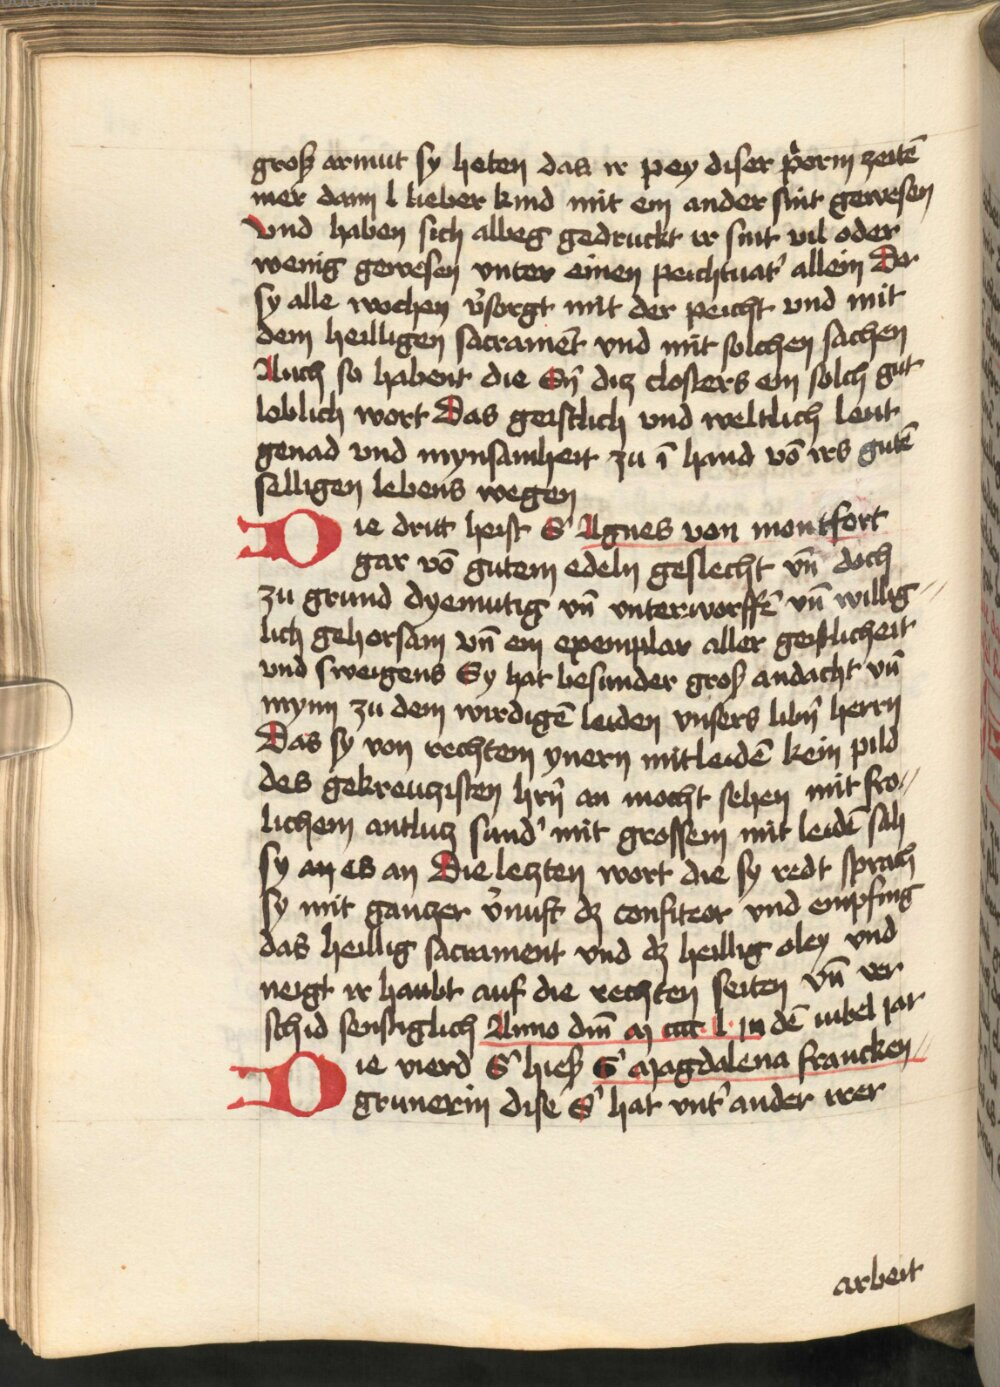 groß armut sy heten das ir pey diser p̄orin zeitē
mer dann l lieber kind mit ein ander sint gewesen
Vnd haben sich albeg gedruckt ir sint vil oder
wenig gewesen vnter einen peichtuat' allein Der
sy alle wochen v̓sorgt mit der peicht vnd mit
dem heilligen sacramēt vnd mit solchen sachen
Auch so habent die Sn̄ diz closters ein solch gut
loblich wort Das geistlich vnd weltlich leut
genad vnd mynsamheit zu ī hand vō irs gutē
selligen lebens wegen
Die dritt heist S' Agnes von montfort
gar vō gutem edeln geslecht vn̄ doch
zu grund dyemutig vn̄ vnterworffē vn̄ willig
lich gehorsam vn̄ ein exemplar aller geistlicheit
vnd sweigens Sy hat besunder groß andacht vn̄
mynn zu dem wirdigē leiden vnsers libn̄ herrn
Das sy von rechtem ynern mitleidē kein pild
des gekreuczisten hrn̄ an mocht sehen mit fro
lichem antlucz sund' mit grossem mit leidē sah
sy an es an Die leczten wort die sy redt sprach
sy mit ganczer v̓nuft dz confiteor vnd empfing
das heillig sacrament vnd dz heillig oley vnd
neigt ir haubt auf die rechten seiten vn̄ ver
schid senftiglich Anno dm̄ M cccc l · in dē iubel jar
Die vierd S' hieß S' Magdalena francken
grunerin dise S' hat vnt' ander irer
arbeit